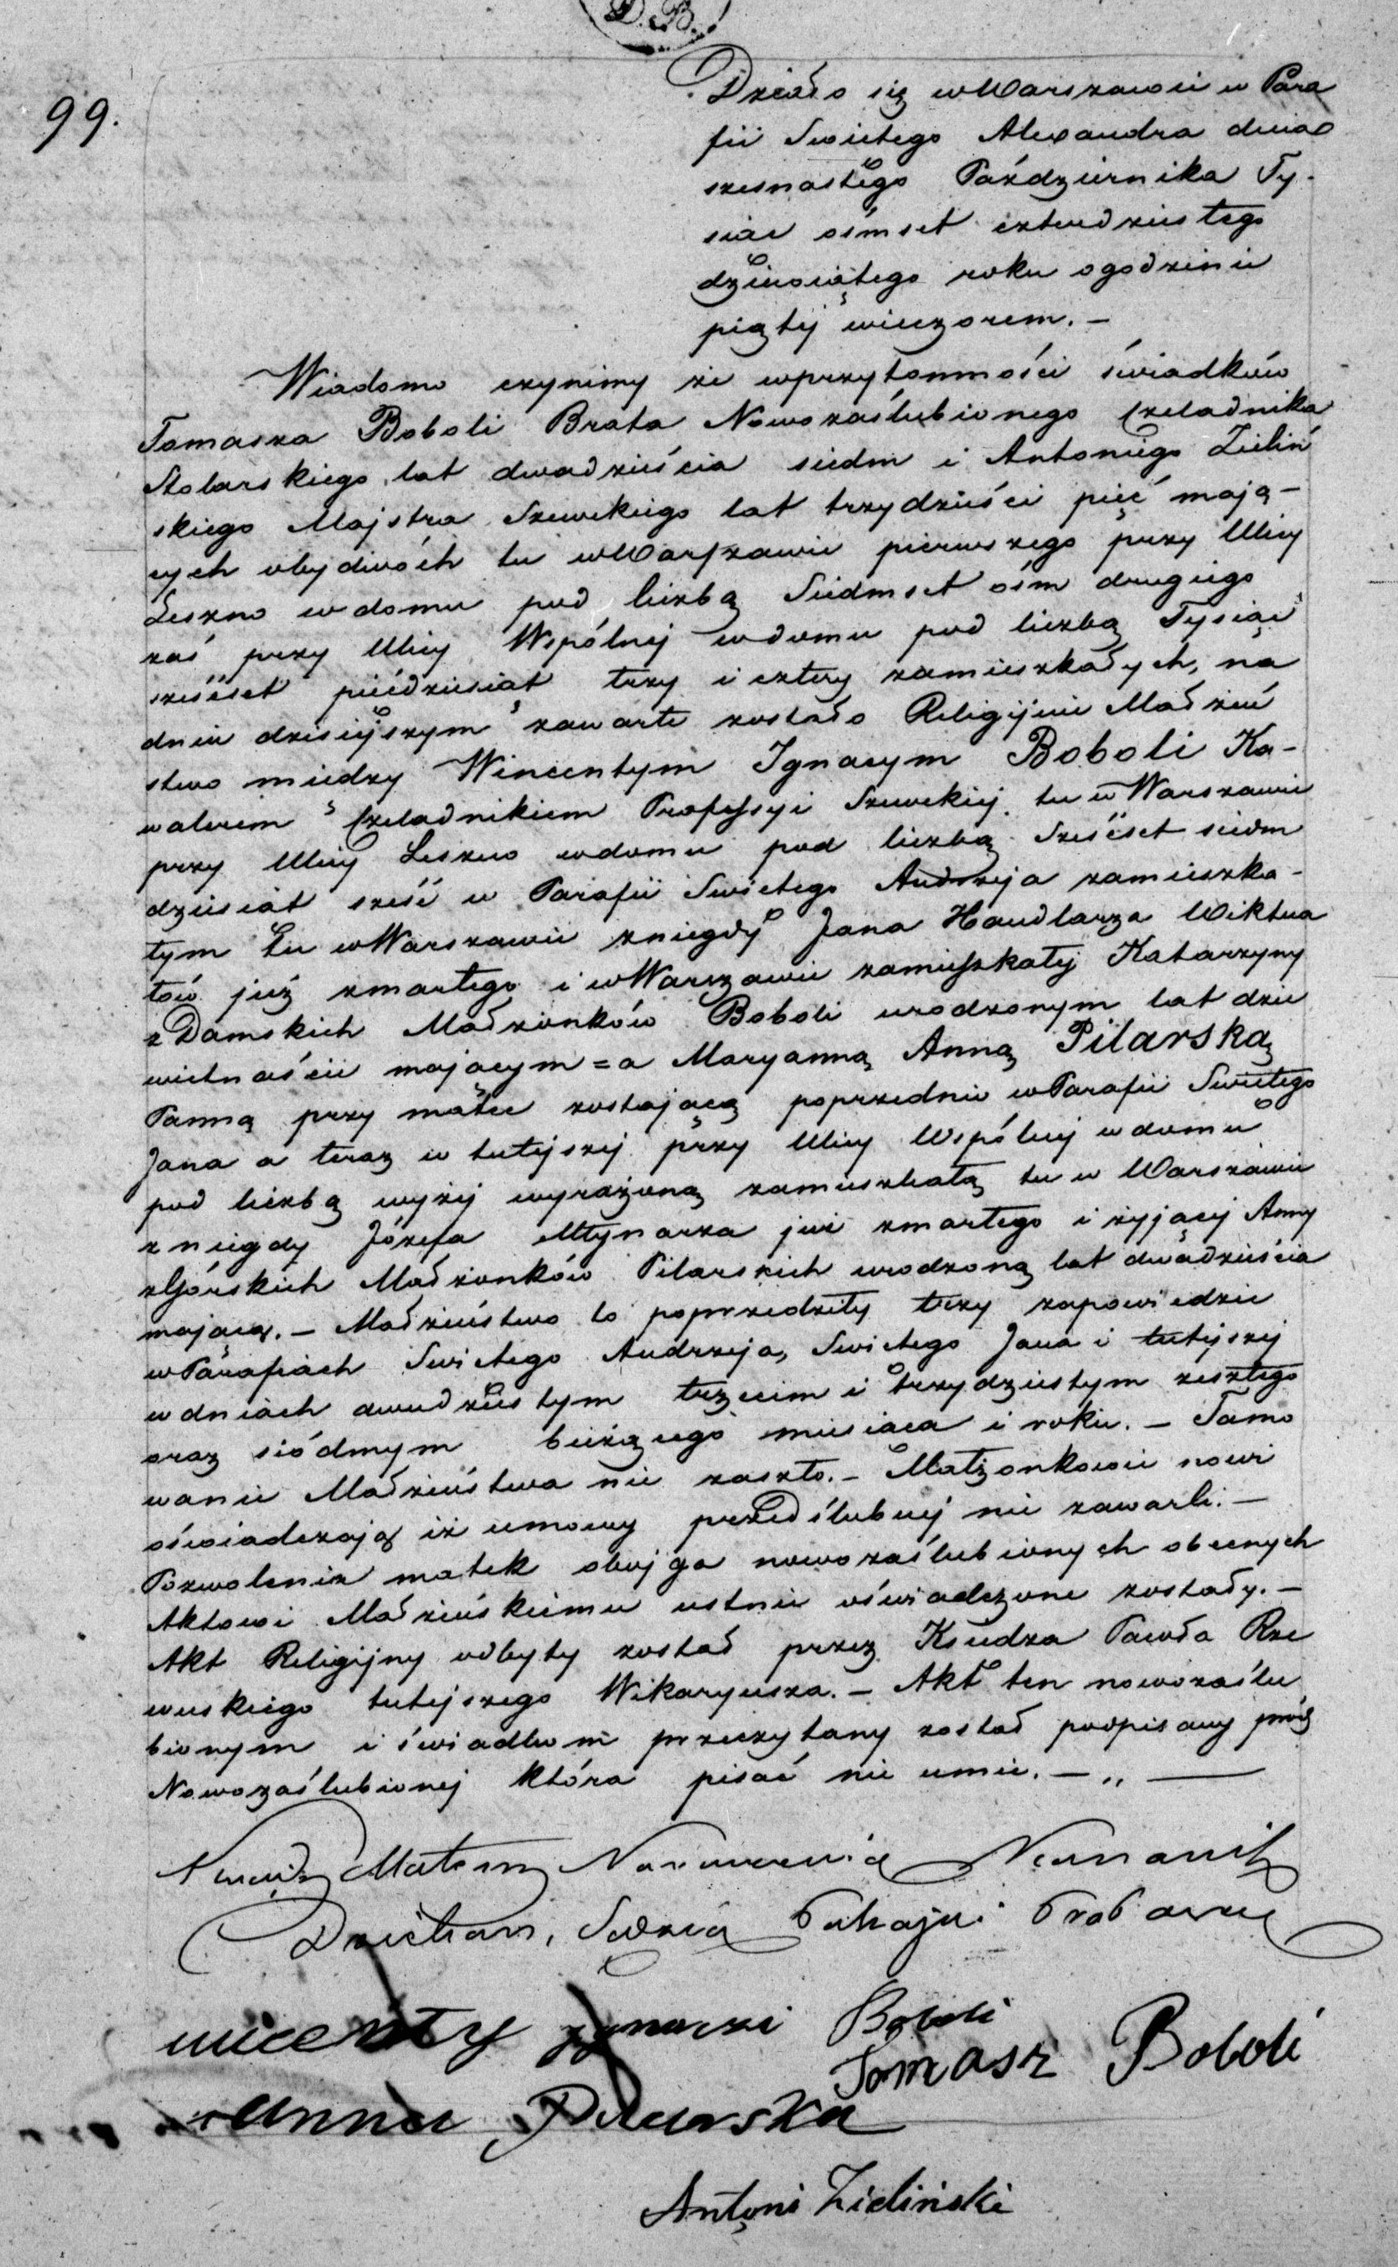 D. B.
99.
Działo się w Warszawie w Para
fii Swietego Alexandra dnia
szesnastego Października Ty-
siąc ośmset czterdziestego
dziewiątego roku o godzinie
piątej wieczorem. —
Wiadomo czynimy że w przytomności świadków
Tomasza Boboli Brata Nowozaślubionego Czeladnika
Stolarskiego, lat dwadzieścia siedm i Antoniego Zieliń
skiego Majstra Szewckiego lat trzydzieści pięć mają-
cych obydwóch tu w Warszawie pierwszego przy Ulicy
Leszno w domu pod liczbą Siedmset ośm drugiego
zaś przy Ulicy Wspólnej w domu pod liczbą Tysiąc
sześćset pięćdziesiąt trzy i cztery zamieszkałych, na
dniu dzisiejszym zawarte zostało Religijnie Małżeń
stwo między Wincentym Ignacym Boboli Ka-
walerem Czeladnikiem Professyi Szewckiej tu w Warszawie
przy Ulicy Leszno w domu pod liczbą Sześćset siedm
dziesiąt sześć w Parafii Swietego Andrzeja zamieszka-
łym tu w Warszawie z niegdy Jana Handlarza Wiktua
łów już zmarłego i w Warszawie zamieszkałej Katarzyny
z Damskich Małżonków Boboli urodzonym lat dzie
wietnaście mającym = a Maryanną Anną Pilarską
Panną przy matce zostającą poprzednio w Parafii Swiętego
Jana a teraz w tutejszej przy Ulicy Wspólnej w domu
pod liczbą wyżej wyrażoną zamieszkałą tu w Warszawie
z niegdy Józefa Młynarza już zmarłego i żyjącej Anny
z Górskich Małżonków Pilarskich urodzoną lat dwadzieścia
mającą. — Małżeństwo to poprzedziły trzy zapowiedzie
w Parafiach Swietego Andrzeja, Swietego Jana i tutejszej
w dniach dwudziestym trzecim i trzydziestym zeszłego
oraz siódmym bieżącego miesiąca i roku. — Tamo
wanie Małżeństwa nie zaszło. — Małżonkowie nowi
oświadczają iż umowy przedślubnej nie zawarli. —
Pozwolenia matek obojga nowozaślubionych obecnych
Aktowi Małżeńskiemu ustnie oświadczone zostały. —
Akt Religijny odbyty został przez Księdza Pawła Rze
wuskiego tutejszego Wikaryusza. — Akt ten nowozaślu
bionym i świadkom przeczytany został podpisany prócz
Nowozaślubionej która pisać nie umie. — „ —
Ksiądz
Dziekan,
wicenty Boboli
Tomasz Boboli
Anna Pilarska
Antoni Zieliński